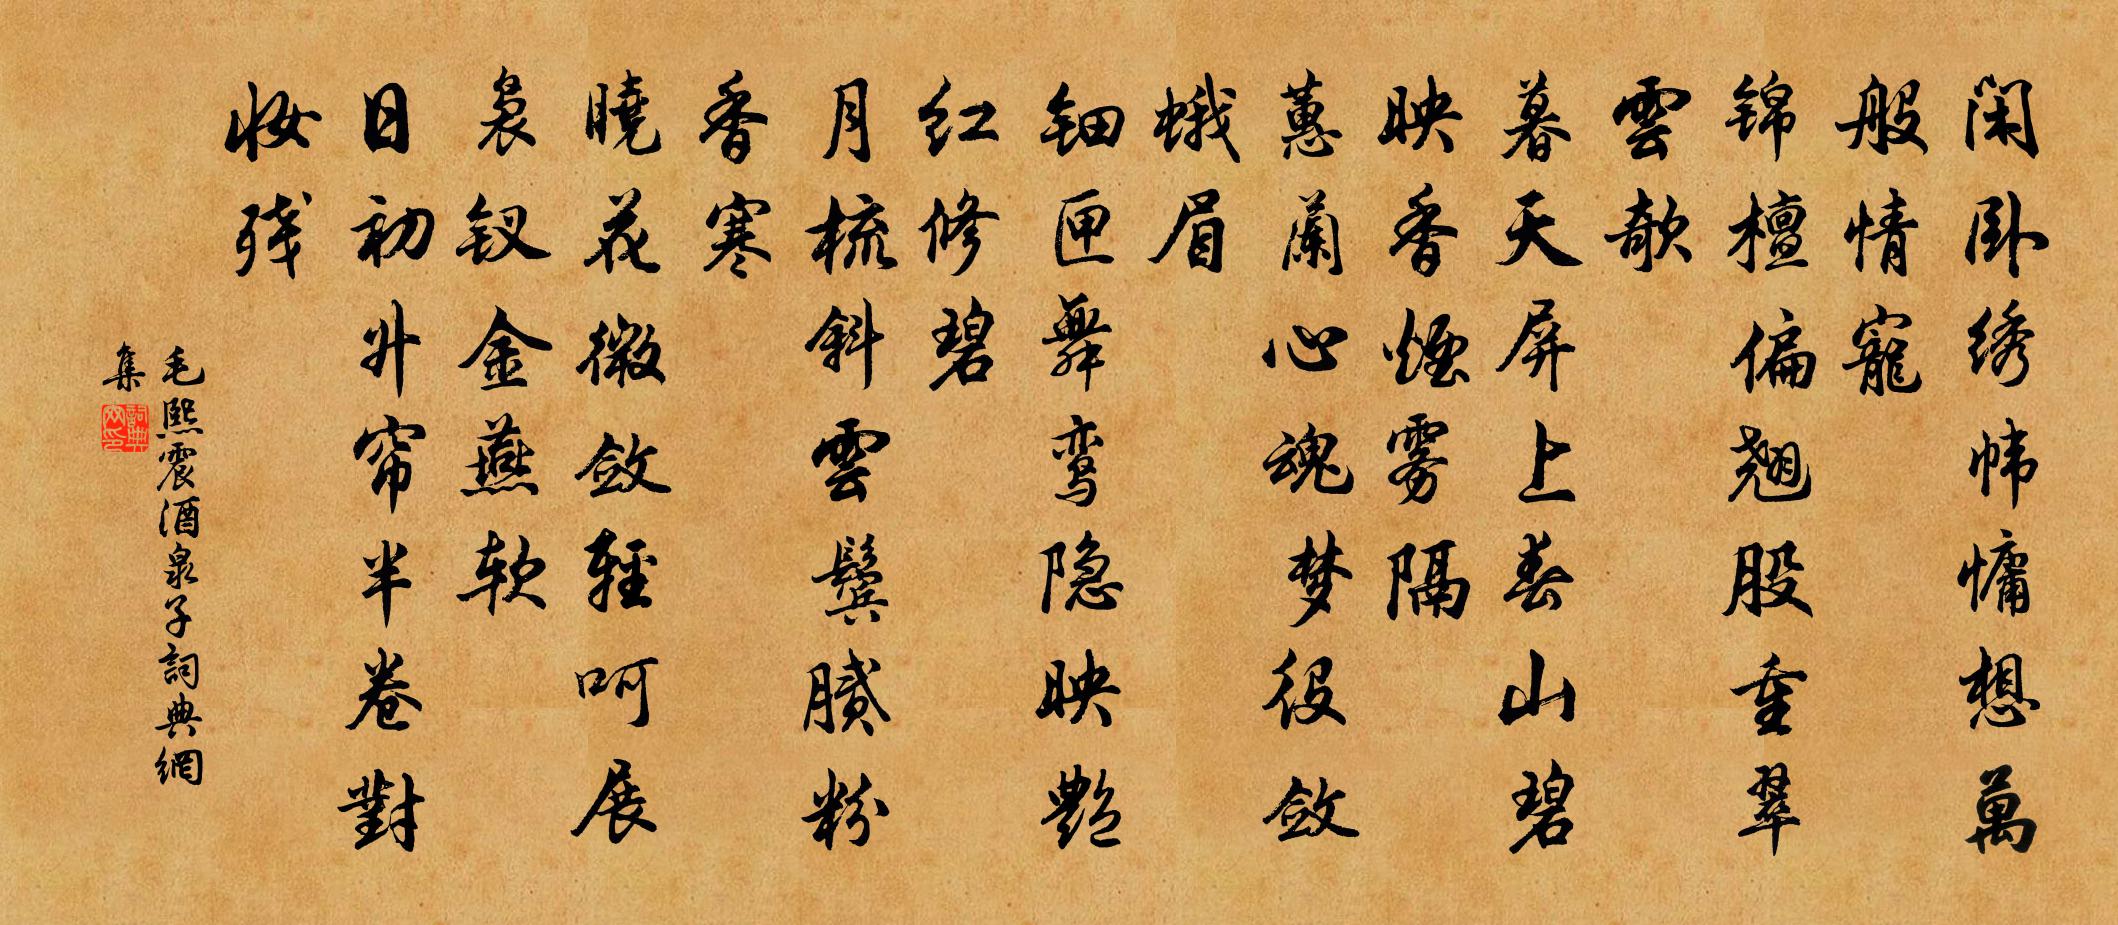 闲卧绣帏慵想萬
般情寵
锦檀偏翘股重翠
雲欹
暮天屏上春山碧
映香煙雾隔
蕙蘭心魂梦役敛
蛾眉
钿匣舞鸾隐映艶
红修碧
月梳斜雲鬓腻粉
香寒
曉花微敛輕呵展
袅钗金燕软
日初升帘半卷對
妆残
毛熙震酒泉子詞典網
集
詞典网印